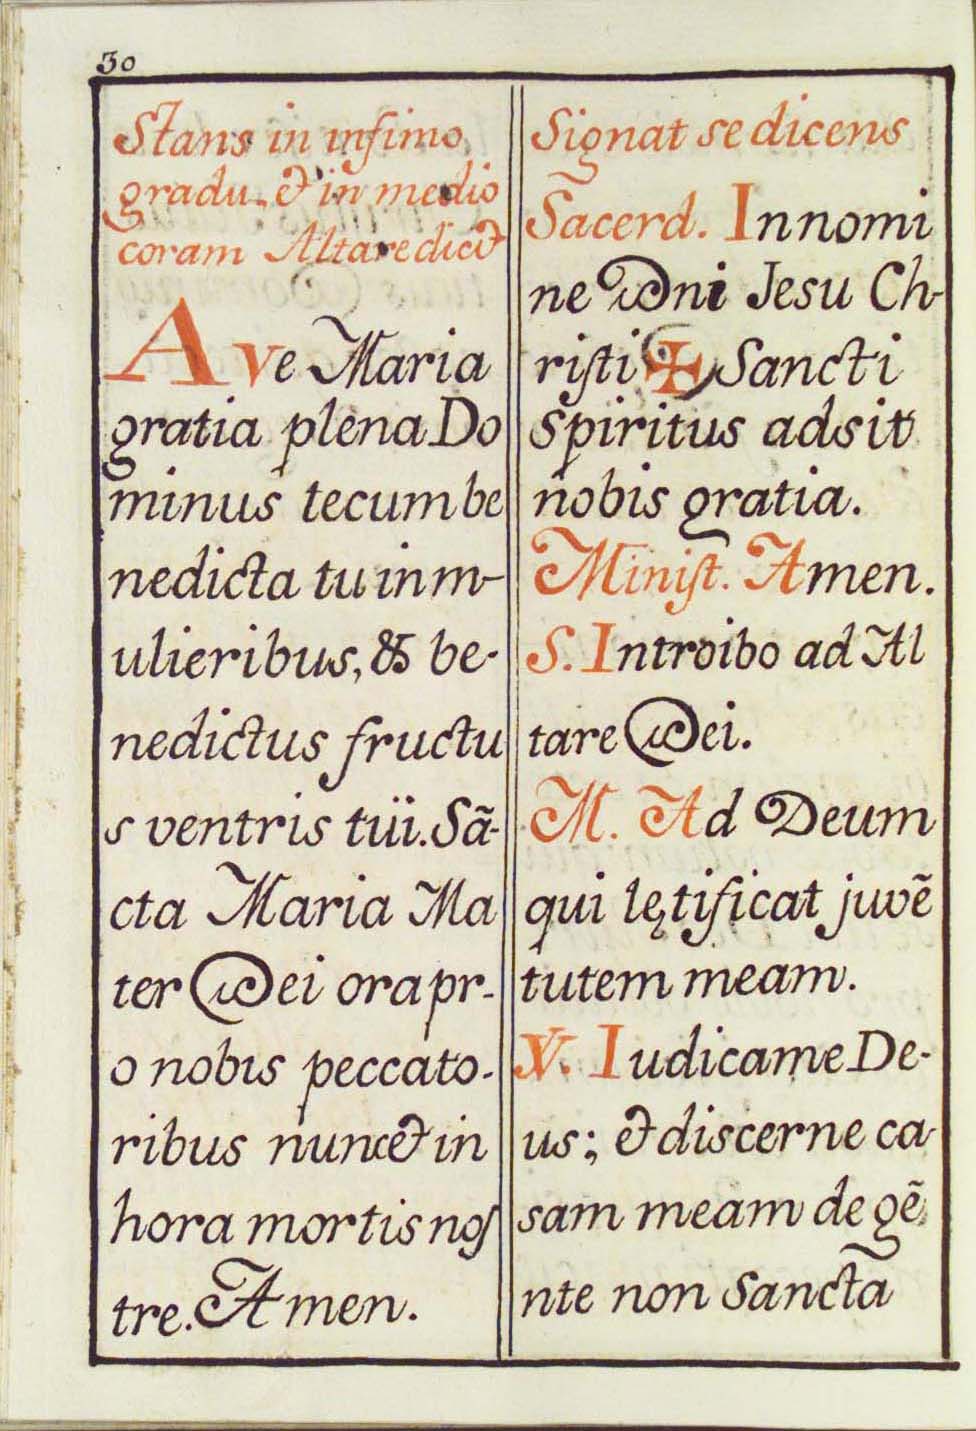 30
Stans in infimo
gradu, & in medio
coram Altare dicit
Ave Maria
gratia plena Do
minus tecum be
nedicta tu in m-
ulieribus, & be-
nedictus fructu
s ventris tüi. Sã-
cta Maria Ma
ter Dei ora pr-
o nobis peccato-
ribus nunc et in
hora mortis nos
tre. Amen.
Signat se dicens
Sacerd. In nomi
ne Dni Jesu Ch-
risti ✠ Sancti
spiritus adsit
nobis gratia.
Minist. Amen.
S. Introibo ad Al
tare Dei.
M. Ad Deum
qui lętificat juvẽ
tutem meam.
V. Iudica me De-
us; et discerne ca
sam meam de gẽ
nte non Sancta